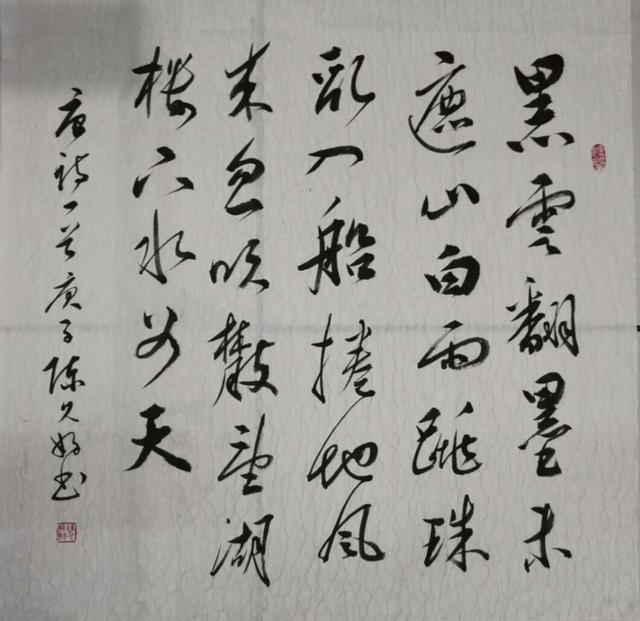 黑雲翻墨未
遮山白雨跳珠
亂入船捲地風
來忽吹㪚望湖
樓下水如天
唐詩一首庚子陳久好书